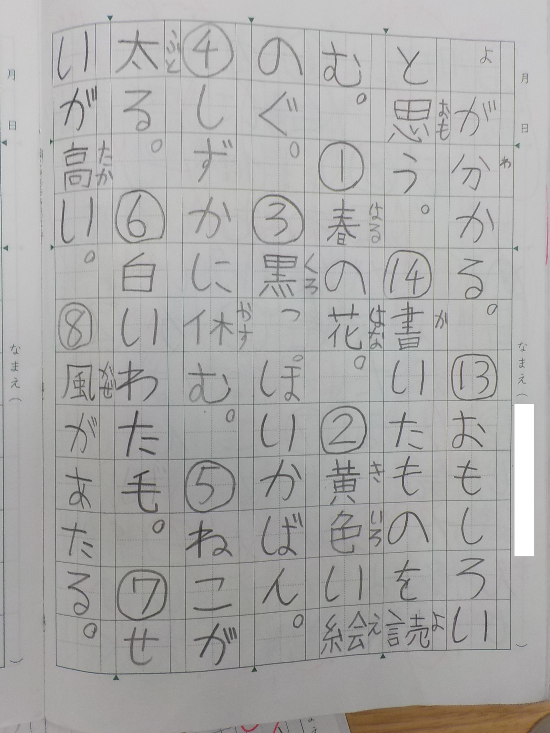 月 日 なまえ( )
ょが分かる。⑬おもしろい
わ
と思う。⑭書いたものを読
おも か よ
む。①春の花。②黄色い絵
はる はな き いろ え
のぐ。③黒っぽいかばん。
くろ
④しずかに休む。⑤ねこが
やす
太る。⑥白いわた毛。⑦せ
ふと
いが高い。⑧風があたる。
たか かぜ
月 日 なまえ( )